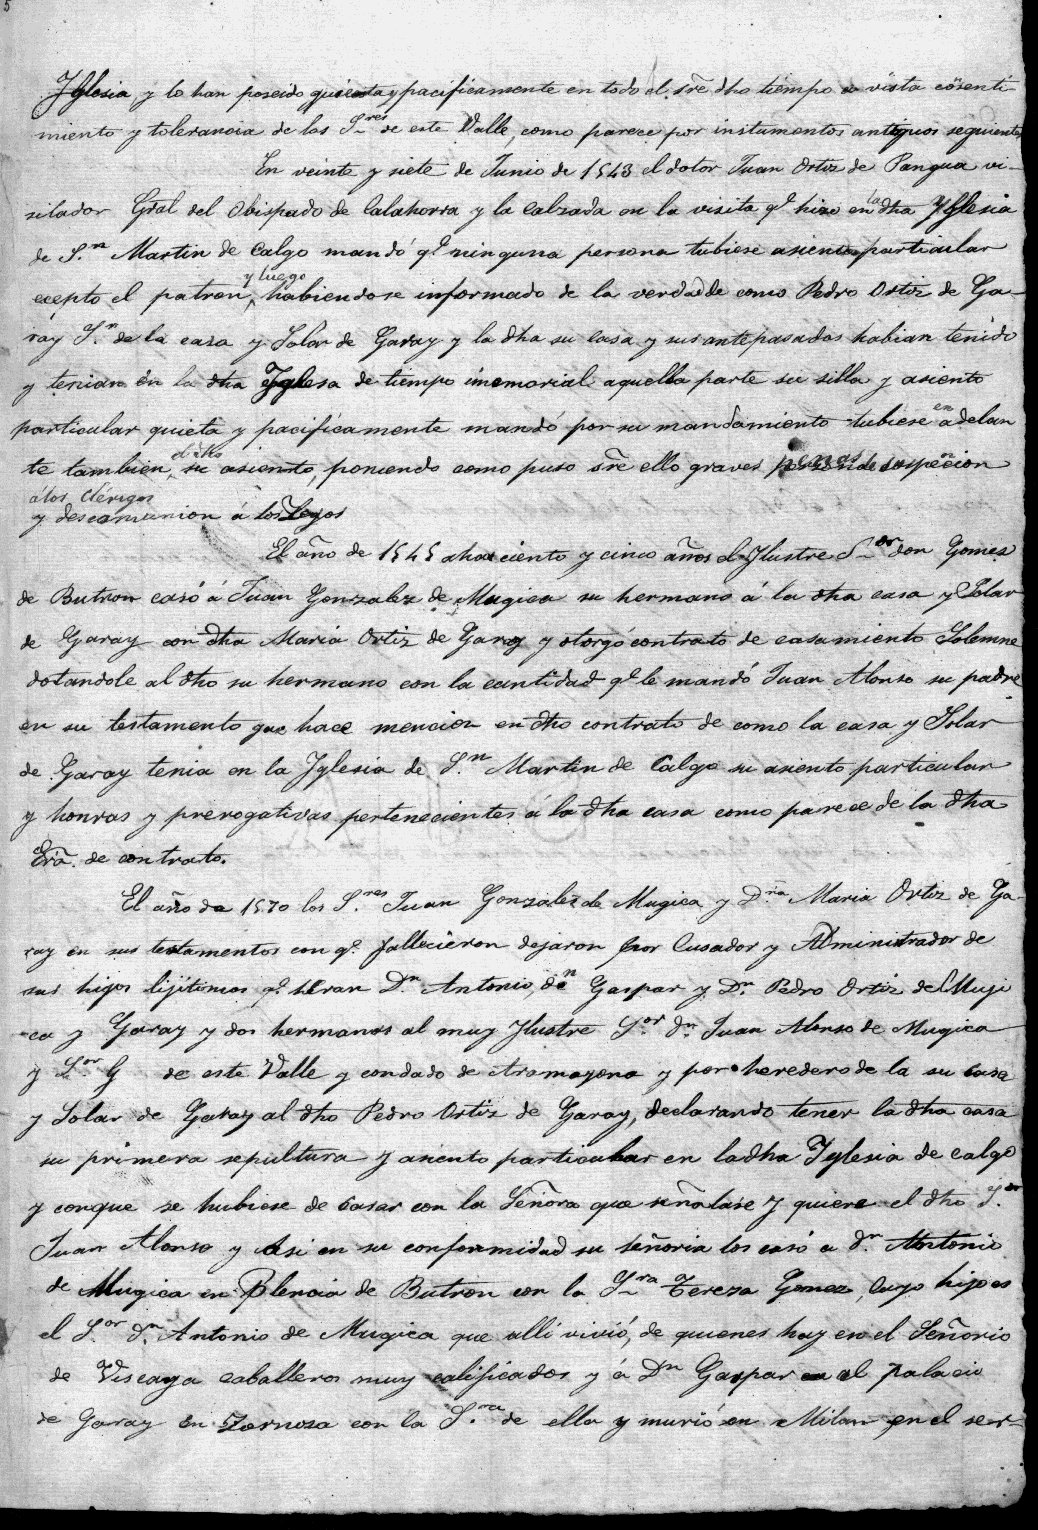 5
Yglesia y lo han poseido quieta y pacificamente en todo el sr̃e dho tiempo a vista cõsenti-
miento y tolerancia de los S.res de este Valle, como parece por instumentos antiguos seguientes
En veinte y siete de Junio de 1543 el dotor Juan Ortiz de Pangua vi-
sitador Gral del Obispado de Calahorra y la Calzada en la visita q.e hizo en la dha Yglesia
de S.n Martin de Calgo mandó q.e ninguna persona tubiese asiento particular
ecepto el patron, y luego habiendose informado de la verdad de como Pedro Ortiz de Ga-
ray S.n de la casa y Solar de Garay y la dha su casa y sus antepasados habian tenido
y tenian en la dha Yglesa de tiempo inemorial aquella parte su silla y asiento
particular quieta y pacificamente mandó por su mandamiento tubiese en adelan
te tambien, el dho su asiento, poniendo como puso sr̃e ello graves penas de suspencion
á los Clérigos
y descomunion á los Legos
El año de 1545 ahora ciento y cinco años el Ylustre S.or don Gomez
de Butron casó á Juan Gonzalez de Mugica su hermano á la dha casa y Solar
de Garay con dha Maria Ortiz de Garay y otorgó contrato de casamiento Solemne
dotandole al dho su hermano con la cantidad q.e le mandó Juan Alonso su padre
en su testamento que hace mencion en dho contrato de como la casa y Solar
de Garay tenia en la Yglesia de S.n Martin de Calgo su asiento particular
y honras y prerogativas pertenecientes á la dha casa como parece de la dha
Er̃a. de contrato.
El año de 1570 los S.res Juan Gonzalez de Mugica y D.ña Maria Ortiz de Ga-
ray en sus testamentos con q.e fallecieron dejaron por Cusador y Administrador de
sus hijos lijitimos q.e heran D.n Antonio, d.n Gaspar y D.n Pedro Ortiz de Muji
-ca y Garay y dos hermanas al muy Ylustre S.or d.n Juan Alonso de Mugica
y S.or G de este Valle y condado de Aramayona y por heredero de la su casa
y Solar de Garay al dho Pedro Ortiz de Garay, declarando tener la dha casa
su primera sepultura y asiento particular en la dha Yglesia de Calgo
y conque se hubiese de casar con la Señora que señalase y quiere el dho S.or
Juan Alonso y Asi en su conformidad su señoria los casó a d.n Antonio
de Mugica en Plencia de Butron con la S.ra Tereza Gomez, Cuyo hijo es
el S.or d.n Antonio de Mugica que alli vivió, de quienes hay en el Señorio
de Viscaya caballeros muy calificados y á D.n Gaspar en el palacio
de Garay en Zornosa con la S.ra de ella y murió en Milan en el ser-